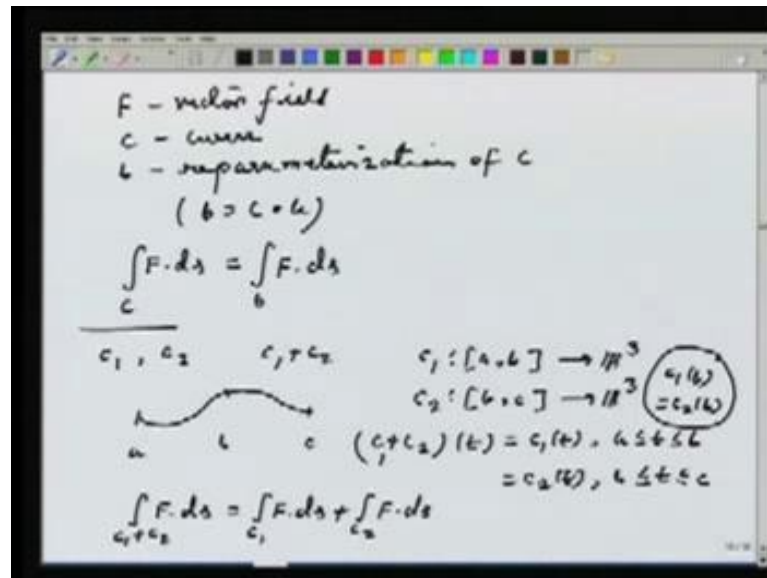 F - vector field
C - curve
b - reparametrization of C
(b = C∘u)
∫_C F.ds = ∫_b F.ds
c₁, c₂   c₁+c₂   c₁ : [a,b] → ℝ³
c₂ : [b,c] → ℝ³
c₁(b)
= c₂(b)
a   b   c   (c₁+c₂)(t) = c₁(t), a ≤ t ≤ b
= c₂(t), b ≤ t ≤ c
∫_{c₁+c₂} F.ds = ∫_{c₁} F.ds + ∫_{c₂} F.ds